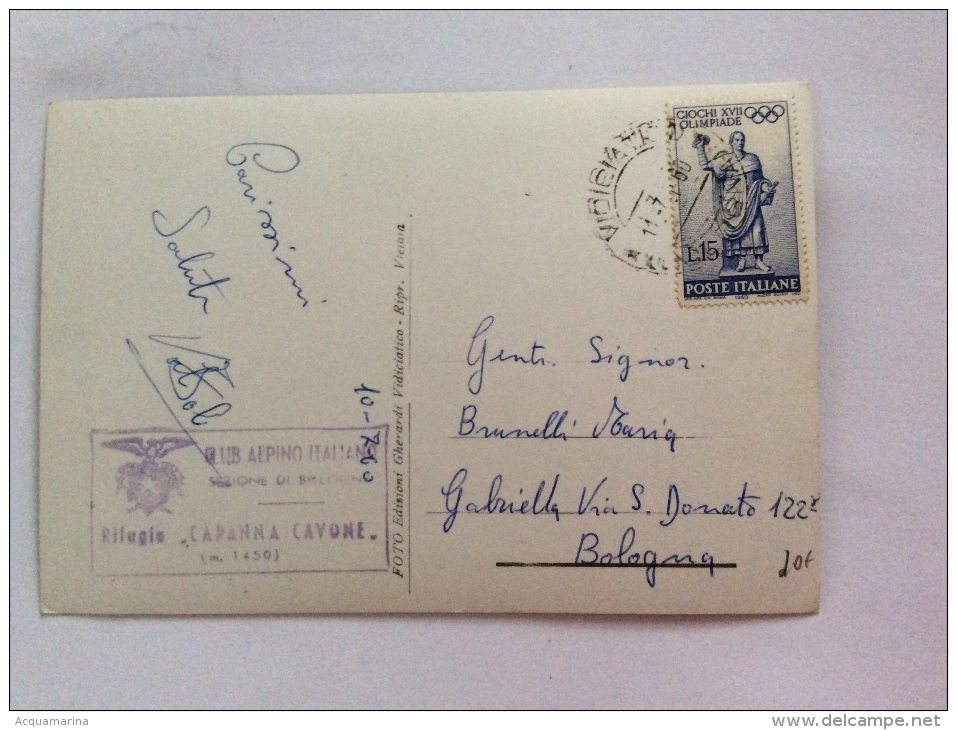 Carissimi
Saluti
10-7-60
CLUB ALPINO ITALIANO
SEZIONE DI BOLOGNA
Rifugio „CAPANNA CAVONE„
(m. 1450)
FOTO Edizioni Gherardi Vidiciatico - Ripr. Vietata
VIDICIATICO
11.7 60
GIOCHI XVII
OLIMPIADE
L.15
POSTE ITALIANE
Gent. Signor.
Brunelli Maria
Gabriella Via S. Donato 122
Bologna
Acquamarina
www.delcampe.net